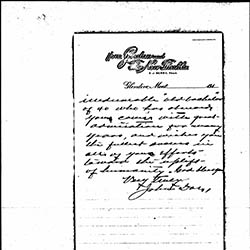 Glendive, Mont. 191
incurable old bachelor
of 40 who has observed
your career with great
admiration for many
years, and wishes you
the fullest success in
all of your efforts
toward the uplift
of humanity. God bless
Very Truly
John